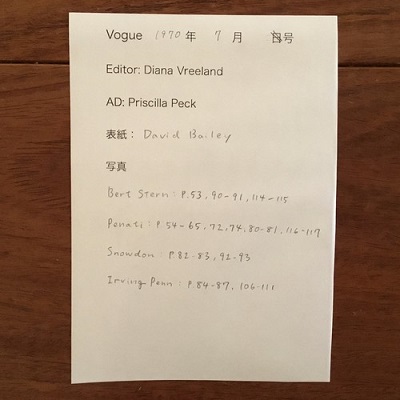 Vogue 1970 年 7 月 号
Editor: Diana Vreeland
AD: Priscilla Peck
表紙： David Bailey
写真
Bert Stern : P.53, 90-91, 114-115
Penati : P.54-65, 72, 74, 80-81, 116-117
Snowdon : P.82-83, 92-93
Irving Penn : P.84-87, 106-111